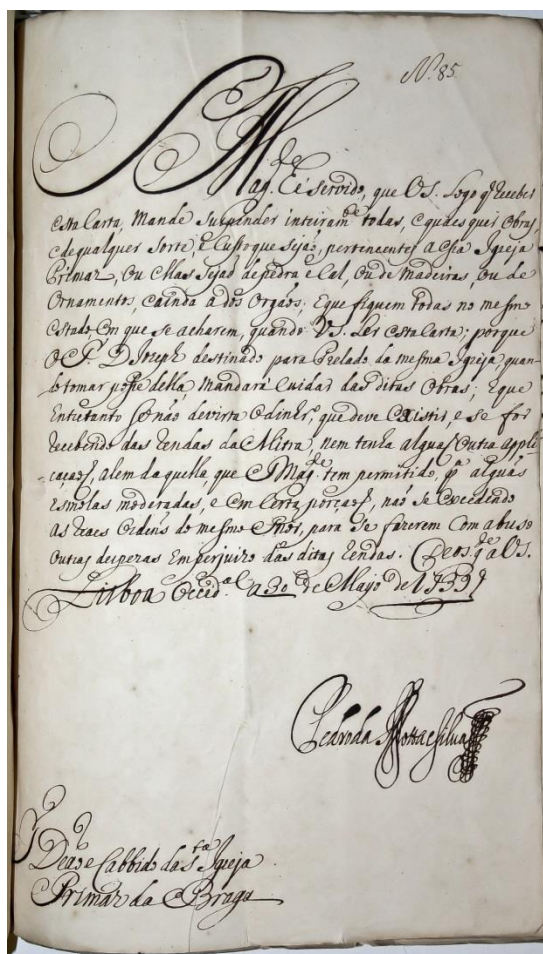 N.º 85
S. Mag.de
hé servido, que V. S. Logo q̃ receber
esta Carta, Mande Suspender inteiram.te todas, e quaes quer Obras,
e de qualquer Sorte, e Custo que Sejaõ, pertencentes a essa Igreja
Primaz, ou Mas Sejaõ de pedra e Cal, ou de Madeiras, ou de
Ornamentos, e ainda a dos Orgaõs; E que fiquem todas no mesmo
estado em que Se acharem, quando V. S. Ler esta Carta; porque
o S.r D. Joseph destinado para Prelado da mesma Igreja, quan-
do tomar posse della, Mandará Cuidar das ditas Obras; E que
Entretanto Se naõ devirta o dinhr.º, que deve Existir, e se for
recebendo das rendas da Mitra, nem tenha algua outra appli-
caçaõ, alem daquella, que S. Mag.de tem permitido, p.ª alguãs
esmolas moderadas, e em Certa porçaõ, naõ Se Excedendo
as reaes Ordens do mesmo Snõr, para Se fazerem Com abuso
outras despezas Em perjuizo das ditas rendas. Deos g.e a V. S.
Lisboa Occid.al a 30 de Mayo de 1739
Pedro da Motta e Silva
S.r Deaõ e Cabbido da S.ta Igreja
Primaz da Braga